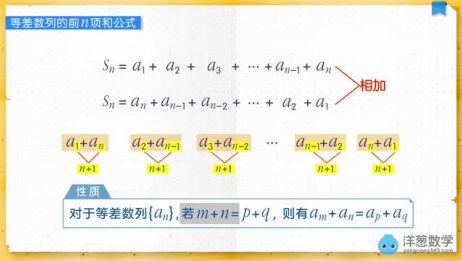 等差数列的前n项和公式
Sₙ = a₁ + a₂ + a₃ + ⋯ + aₙ₋₁ + aₙ
相加
Sₙ = aₙ + aₙ₋₁ + aₙ₋₂ + ⋯ + a₂ + a₁
a₁+aₙ a₂+aₙ₋₁ a₃+aₙ₋₂ ⋯ aₙ₋₁+a₂ aₙ+a₁
n+1 n+1 n+1 n+1 n+1
性质
对于等差数列{aₙ}, 若m+n=p+q, 则有aₘ+aₙ=aₚ+a_q
洋葱数学
yangcong345.com